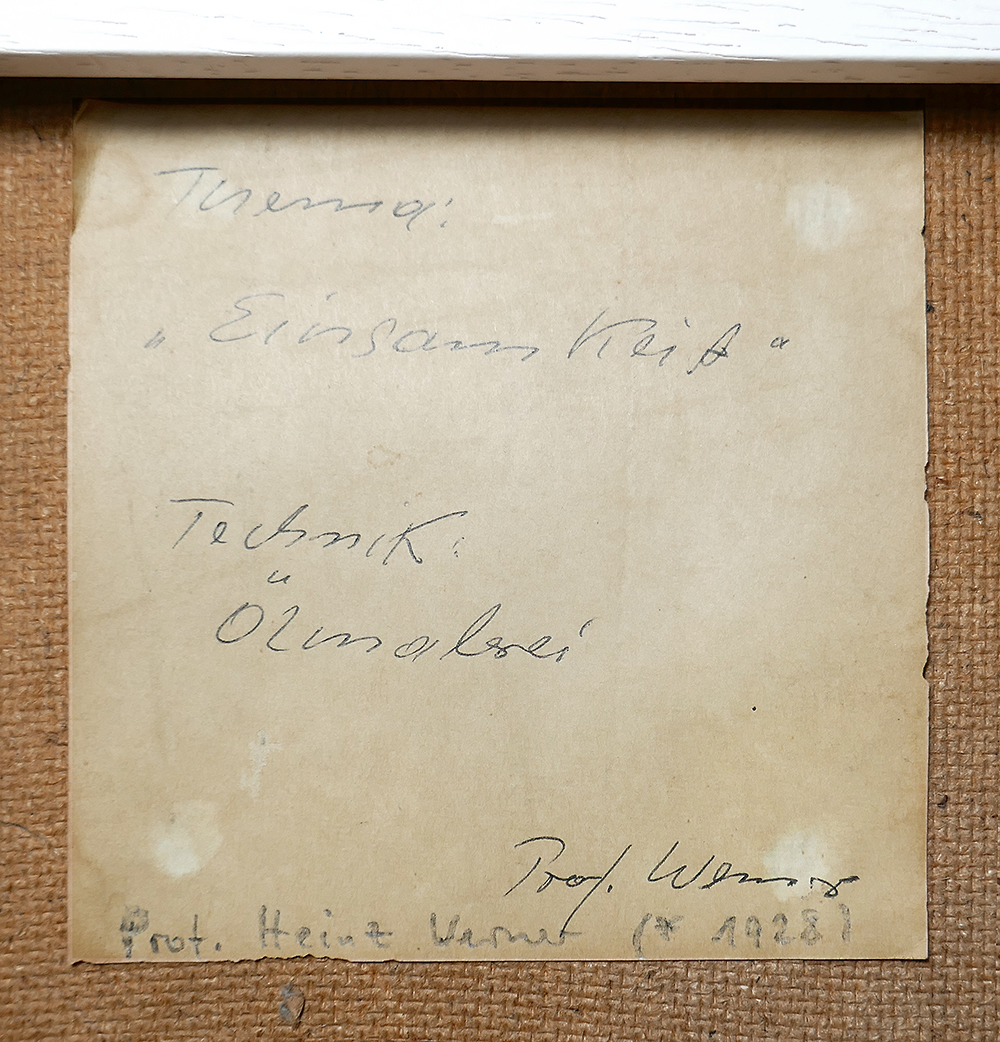 Thema:
„Einsamkeit“
Technik:
Ölmalerei
Prof. Werner
Prof. Heinz Werner (* 1928)